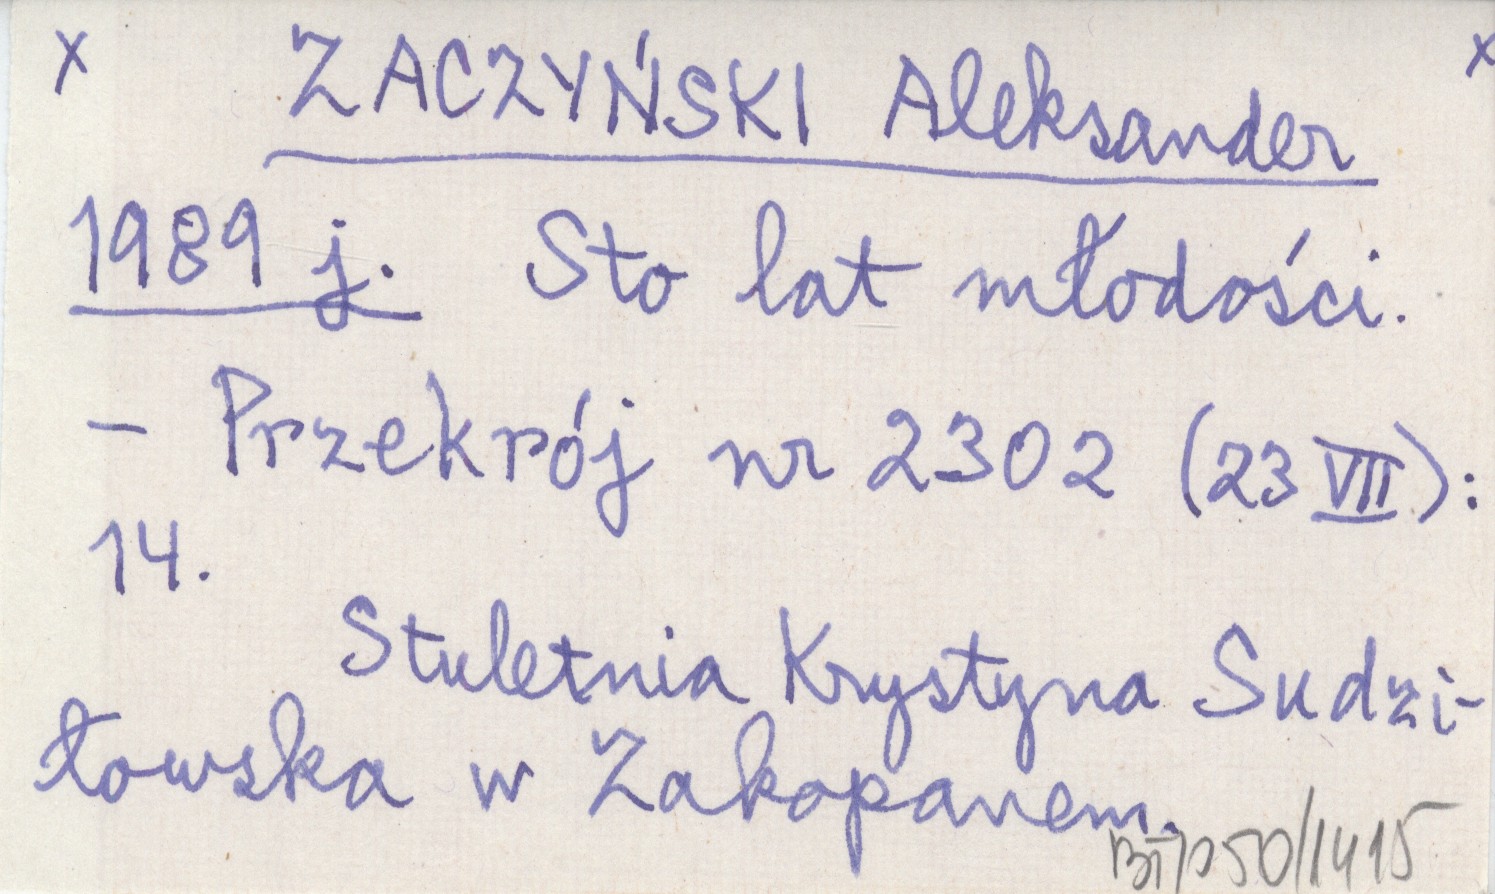 x ZACZYŃSKI Aleksander x
1989 j. Sto lat młodości.
– Przekrój nr 2302 (23 VII):
14.
Stuletnia Krystyna Sudzi-
łowska w Zakopanem.
50/1415